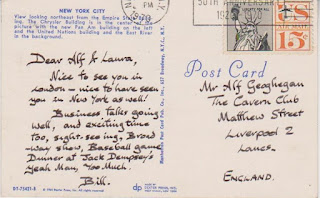 NEW YORK CITY
View looking northeast from the Empire State
The Chrysler Building is in the center of the
picture with the new Pan Am Building on the left
and the United Nations building and the East River
in the background.
Dear Alf & Laura,
Nice to see you in
London – nice to have seen
you in New York as well!
Business talks going
well, and exciting time
too, sight-seeing, Broad-
way show, Baseball game
Dinner at Jack Dempsey's
Yeah Man, Too Much.
Bill.
DT-75421-B
PM
50TH ANNIVERSARY
15¢
Post Card
Mr Alf Geoghegan
The Cavern Club
Matthew Street
Liverpool 2
Lancs.
ENGLAND.
dp